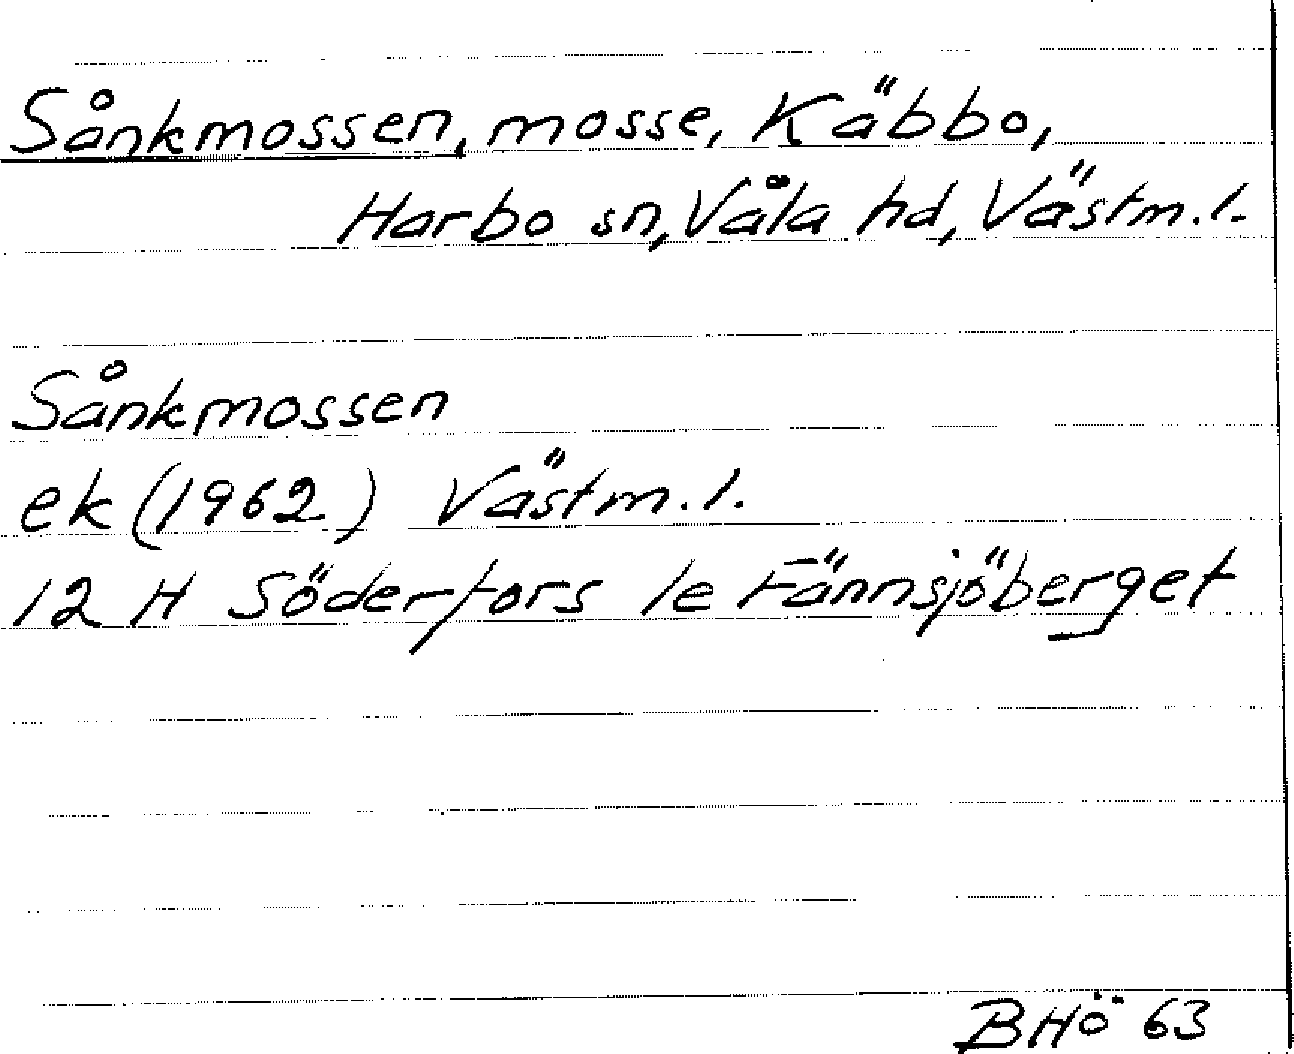 Sånkmossen, mosse, Käbbo,
Harbo sn, Våla hd, Västm.l.
Sånkmossen
ek (1962) Västm.l.
12 H Söderfors 1e Fännsjöberget
BHö 63